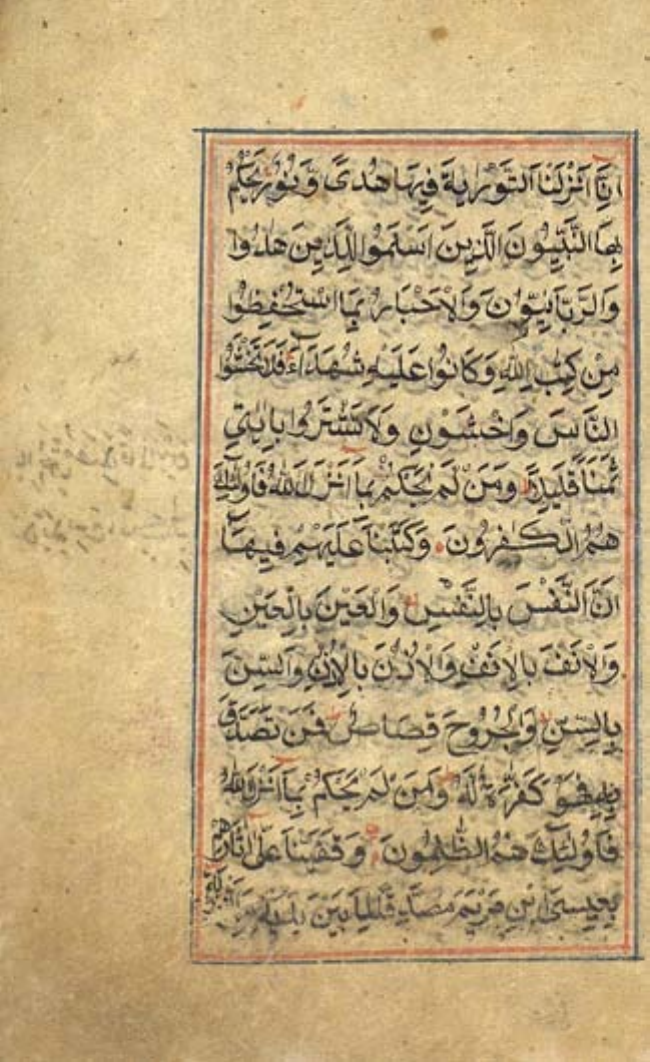 اِنَّا اَنْزَلْنَا التَّوْرٰىةَ فِيهَا هُدًى وَنُورٌ يَحْكُمُ
بِهَا النَّبِيُّونَ الَّذِينَ اَسْلَمُوا لِلَّذِينَ هَادُوا
وَالرَّبَّانِيُّونَ وَالْاَحْبَارُ بِمَا اسْتُحْفِظُوا
مِنْ كِتٰبِ اللّٰهِ وَكَانُوا عَلَيْهِ شُهَدَآءَ فَلَا تَخْشَوُا
النَّاسَ وَاخْشَوْنِ وَلَا تَشْتَرُوا بِاٰيٰتِي
ثَمَنًا قَلِيلًا وَمَنْ لَمْ يَحْكُمْ بِمَآ اَنْزَلَ اللّٰهُ فَاُولٰئِكَ
هُمُ الْكٰفِرُونَ وَكَتَبْنَا عَلَيْهِمْ فِيهَآ
اَنَّ النَّفْسَ بِالنَّفْسِ وَالْعَيْنَ بِالْعَيْنِ
وَالْاَنْفَ بِالْاَنْفِ وَالْاُذُنَ بِالْاُذُنِ وَالسِّنَّ
بِالسِّنِّ وَالْجُرُوحَ قِصَاصٌ فَمَنْ تَصَدَّقَ
بِهِ فَهُوَ كَفَّارَةٌ لَهُ وَمَنْ لَمْ يَحْكُمْ بِمَآ اَنْزَلَ اللّٰهُ
فَاُولٰئِكَ هُمُ الظّٰلِمُونَ وَقَفَّيْنَا عَلٰى اٰثَارِهِمْ
بِعِيسَى ابْنِ مَرْيَمَ مُصَدِّقًا لِمَا بَيْنَ يَدَيْهِ